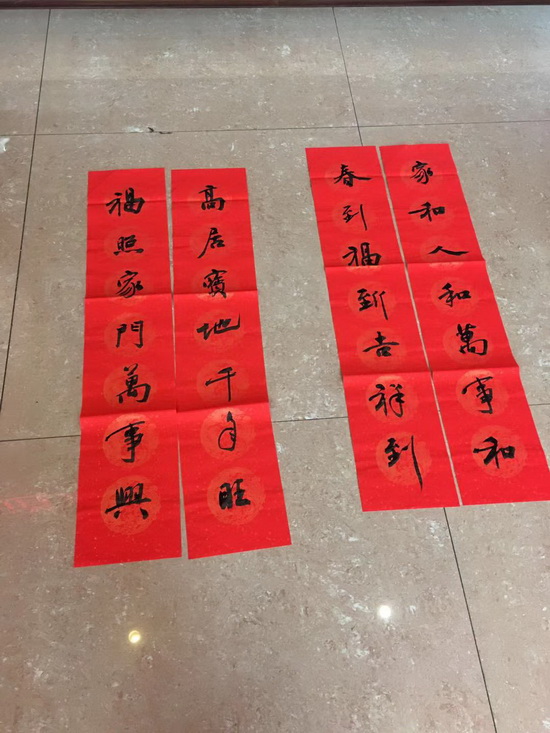 家和人和萬事和
春到福到吉祥到
高居寶地千年旺
福照家門萬事興